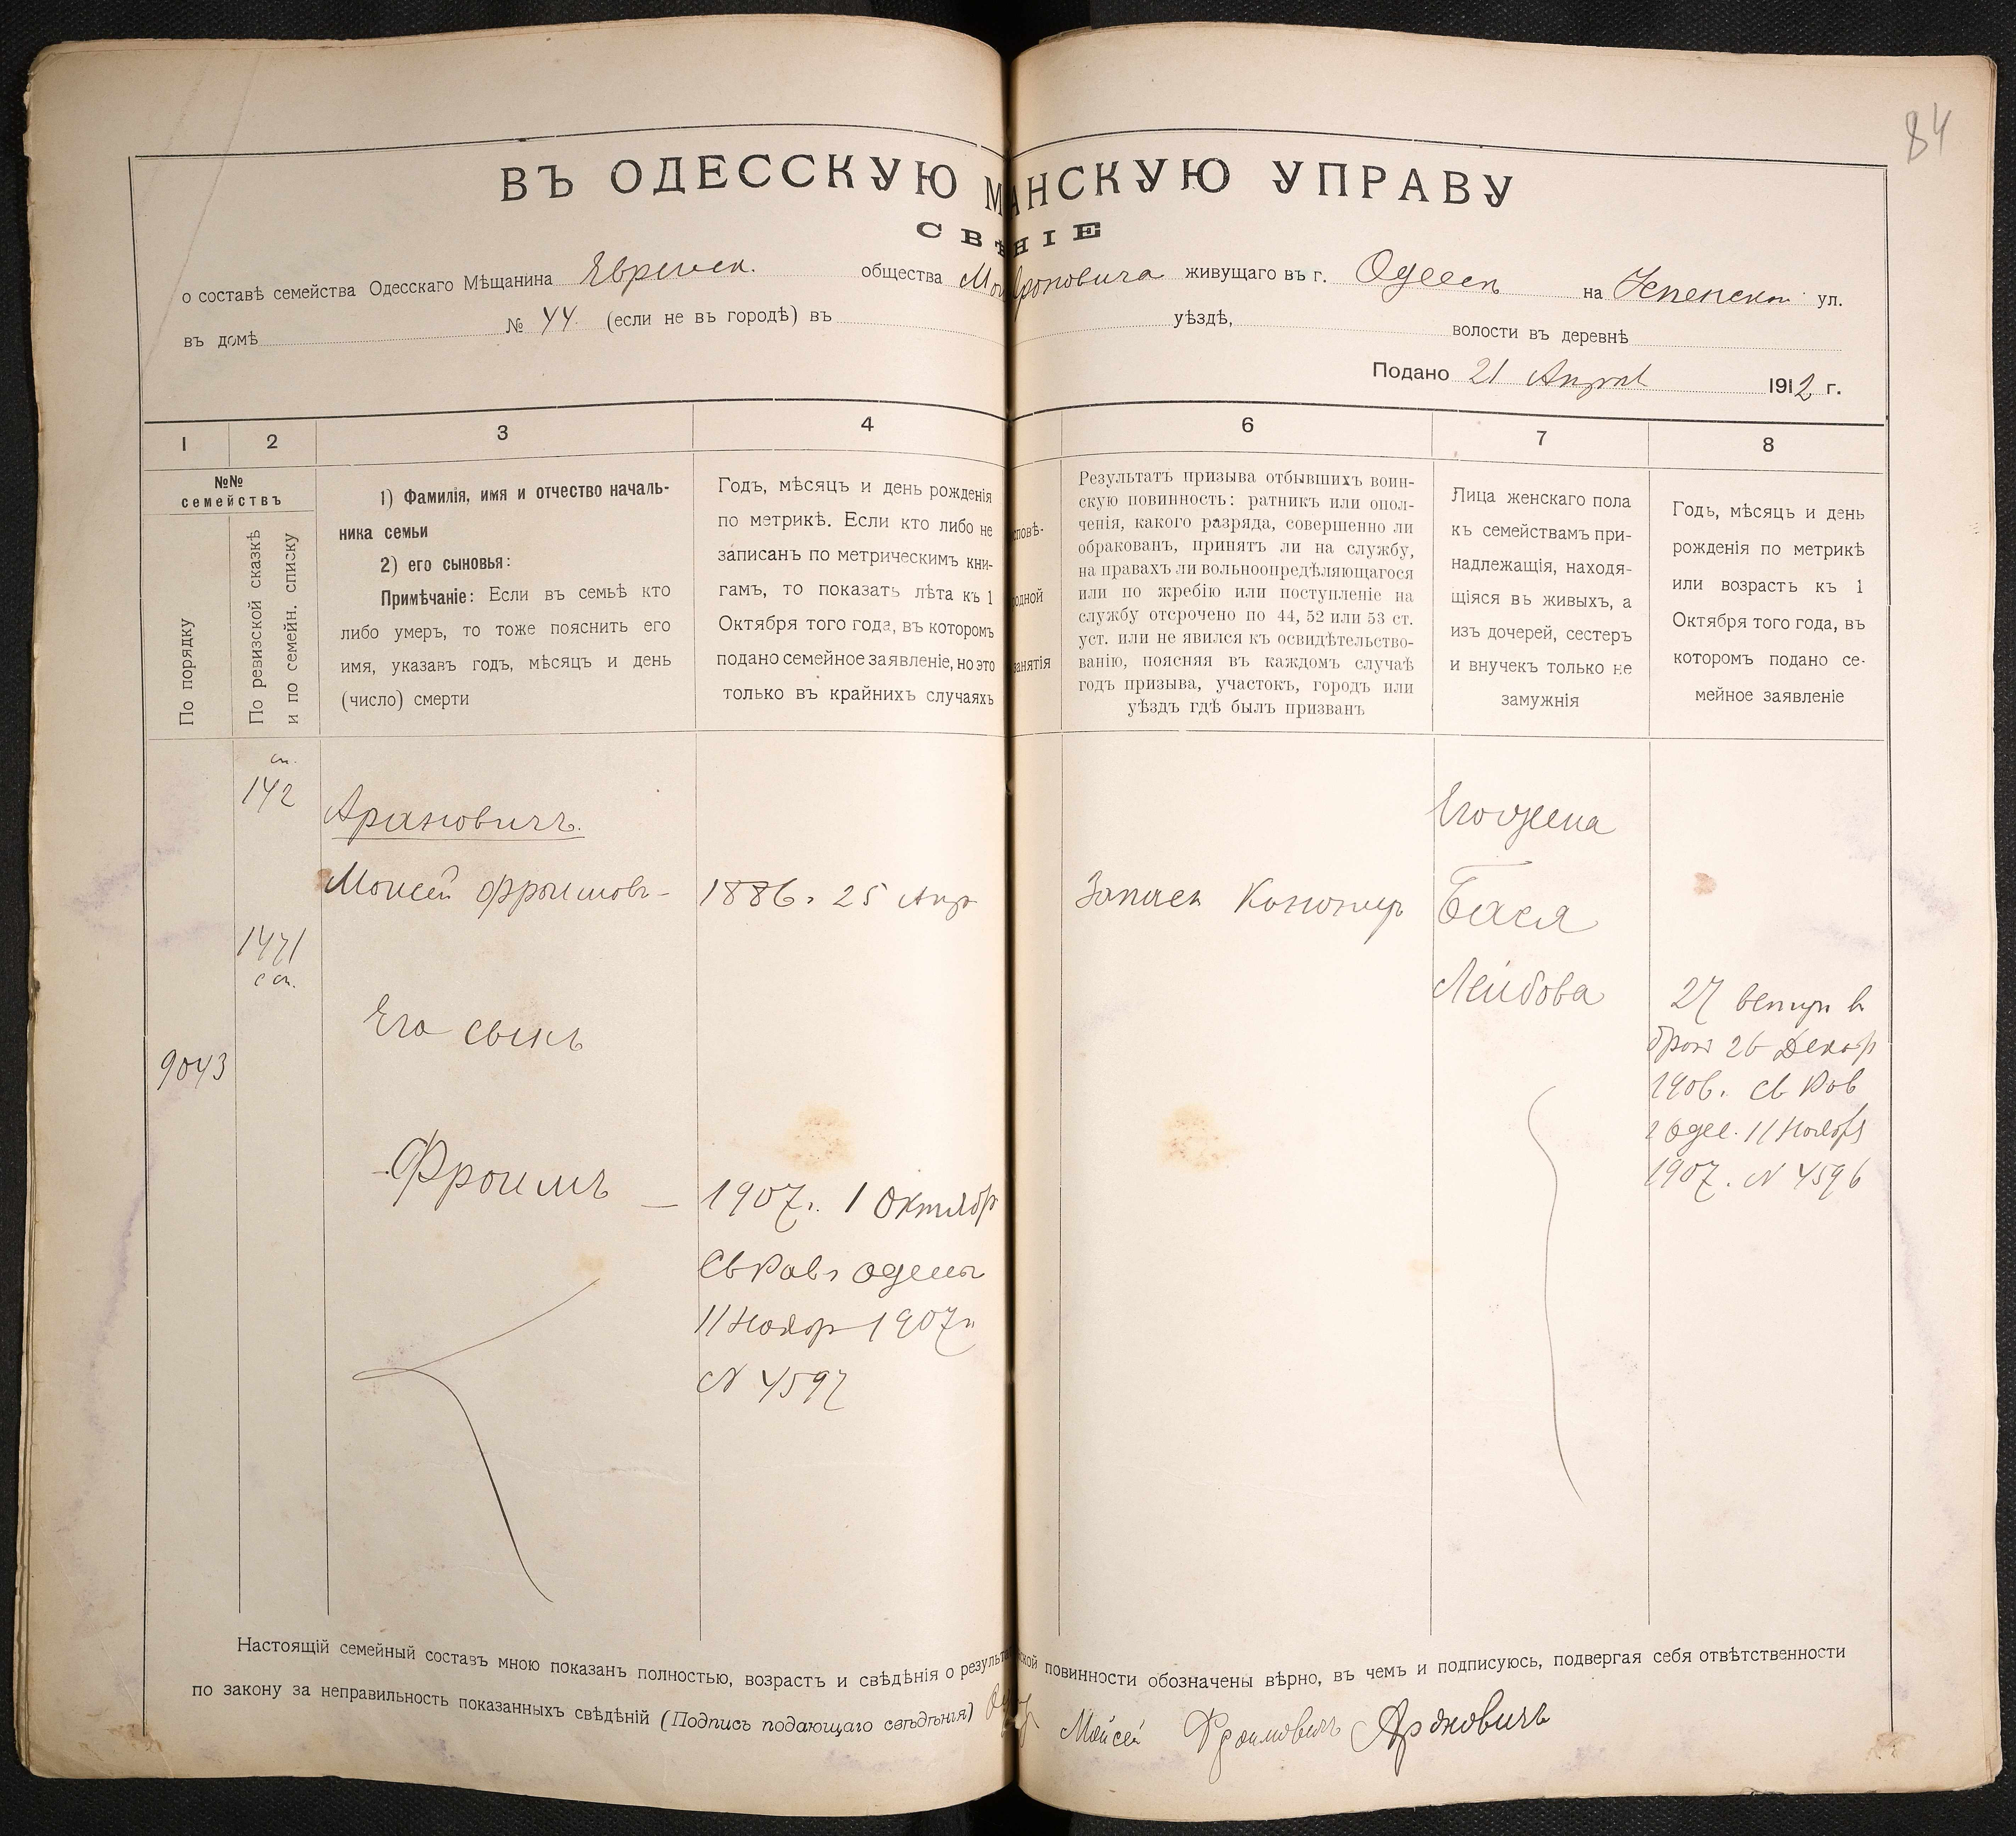 84
ВЪ ОДЕССКУЮ М АНСКУЮ УПРАВУ
СВѢ НІЕ
о составѣ семейства Одесскаго Мѣщанина Евреиск. общества Мо Ароновича живущаго въ г. Одессѣ на Успенской ул.
въ домѣ № 44 (если не въ городѣ) въ уѣздѣ, волости въ деревнѣ
Подано 21 Апрѣл 1912 г.
1 2 3 4 6 7 8
№№ семействъ
По порядку
По ревизской сказкѣ
и по семейн. списку
1) Фамилія, имя и отчество началь-
ника семьи
2) его сыновья:
Примѣчаніе: Если въ семьѣ кто
либо умеръ, то тоже пояснить его
имя, указавъ годъ, мѣсяцъ и день
(число) смерти
Годъ, мѣсяцъ и день рожденія
по метрикѣ. Если кто либо не
записанъ по метрическимъ кни-
гамъ, то показать лѣта къ 1
Октября того года, въ которомъ
подано семейное заявленіе, но это
только въ крайнихъ случаяхъ
сповѣ-
одной
занятія
Результатъ призыва отбывшихъ воин-
скую повинность: ратникъ или опол-
ченія, какого разряда, совершенно ли
обракованъ, принятъ ли на службу,
на правахъ ли вольноопредѣляющагося
или по жребію или поступленіе на
службу отсрочено по 44, 52 или 53 ст.
уст. или не явился къ освидѣтельство-
ванію, поясняя въ каждомъ случаѣ
годъ призыва, участокъ, городъ или
уѣздъ гдѣ былъ призванъ
Лица женскаго пола
къ семействамъ при-
надлежащія, находя-
щіяся въ живыхъ, а
изъ дочерей, сестеръ
и внучекъ только не
замужнія
Годъ, мѣсяцъ и день
рожденія по метрикѣ
или возрастъ къ 1
Октября того года, въ
которомъ подано се-
мейное заявленіе
сп.
142
1471
с сп.
9043
Арановичъ.
Моисей Фроимовъ -
Его сынъ
Фроимъ -
1886. 25 Апр
1907. 1 Октябр
Св Рав. Одессы
11 Ноябр 1907
N 4597
Запасн
Его жена
Бася
Лейбова
27
26 Декабр
1906. Св Рав
г Одес. 11 Ноября
1907. N 4596
Настоящій семейный составъ мною показанъ полностью, возрастъ и свѣдѣнія о результа ской повинности обозначены вѣрно, въ чемъ и подписуюсь, подвергая себя отвѣтственности
по закону за неправильность показанныхъ свѣдѣній (Подпись подающаго свѣдѣнія) Мойсей Фроимовичъ Ароновичъ